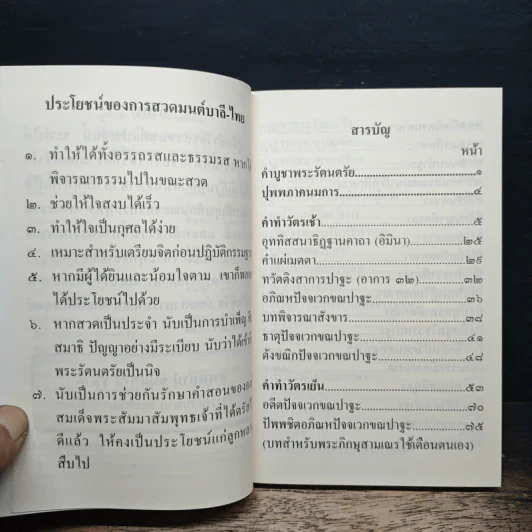 ประโยชน์ของการสวดมนต์บาลี-ไทย
๑. ทำให้ได้ทั้งอรรถรสและธรรมรส หากไ
พิจารณาธรรมไปในขณะสวด
๒. ช่วยให้ใจสงบได้เร็ว
๓. ทำให้ใจเป็นกุศลได้ง่าย
๔. เหมาะสำหรับเตรียมจิตก่อนปฏิบัติกรรมฐาน
๕. หากมีผู้ได้ยินและน้อมใจตาม เขาก็พลอย
ได้ประโยชน์ไปด้วย
๖. หากสวดเป็นประจำ นับเป็นการบำเพ็ญ
สมาธิ ปัญญาอย่างมีระเบียบ นับว่าได้เข้า
พระรัตนตรัยเป็นนิจ
๗. นับเป็นการช่วยกันรักษาคำสอนขององ
สมเด็จพระสัมมาสัมพุทธเจ้าที่ได้ตรัส
ดีแล้ว ให้คงเป็นประโยชน์แก่ลูกหล
สืบไป
สารบัญ
หน้า
คำบูชาพระรัตนตรัย.....๑
ปุพพภาคนมการ.....๔
คำทำวัตรเช้า.....๕
อุททิสสนาธิฏฐานคาถา (อิมินา).....๒๕
คำแผ่เมตตา.....๒๙
ทวัตติงสาการปาฐะ (อาการ ๓๒).....๓๒
อภิณหปัจจเวกขณปาฐะ.....๓๖
บทพิจารณาสังขาร.....๓๘
ธาตุปัจจเวกขณปาฐะ.....๔๑
ตังขณิกปัจจเวกขณปาฐะ.....๔๘
คำทำวัตรเย็น.....๕๓
อตีตปัจจเวกขณปาฐะ.....๗๐
ปัพพชิตอภิณหปัจจเวกขณปาฐะ.....๗๕
(บทสำหรับพระภิกษุสามเณรใช้เตือนตนเอง)